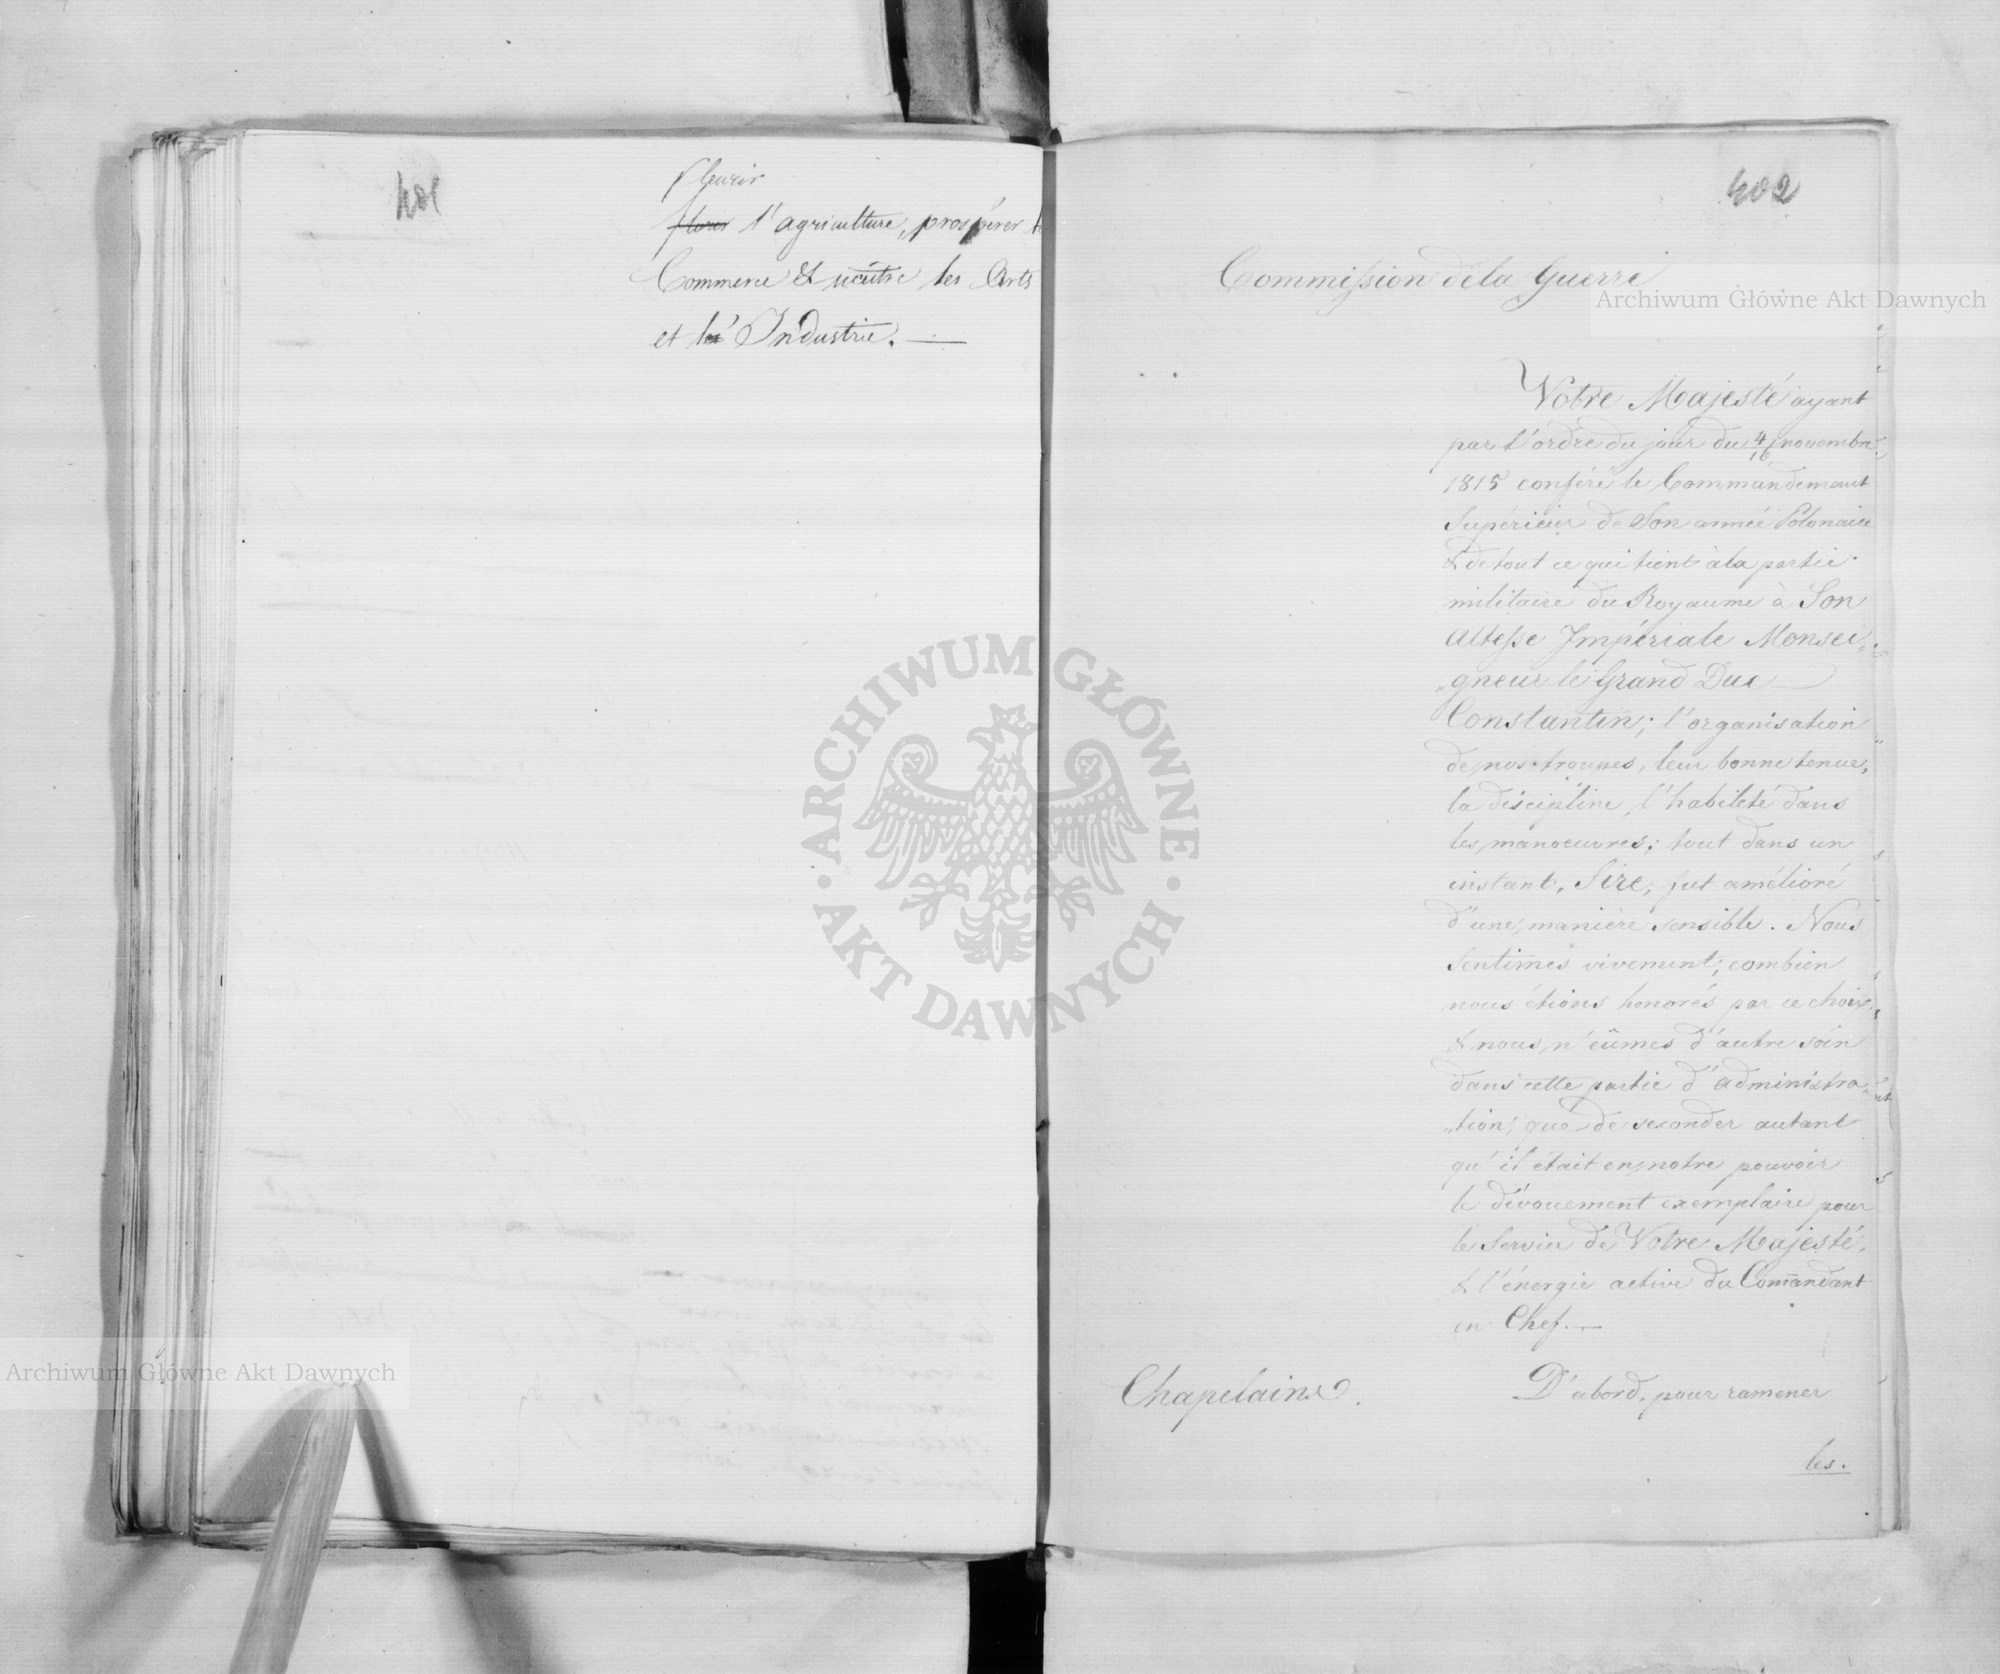 401
fleurir
fleurir l'agriculture, prospérer le
Commerce et naître les Arts
et l'Industrie. —
402
Commission de la Guerre
Votre Majesté ayant
par l'ordre du jour du 4/16 novembre
1815 conféré le Commandemant
Supérieur de Son armée Polonaise
& de tout ce qui tient à la partie
militaire du Royaume à Son
Altesse Impériale Monsei„
„gneur le Grand Duc —
Constantin; l'organisation
de nos troupes, leur bonne tenue,
la discipline, l'habileté dans
les manoeuvres; tout dans un
instant, Sire, fut amélioré
d'une manière sensible. Nous
Sentimes vivement, combien
nous étions honorés par ce choix,
& nous n'eûmes d'autre soin
dans cette partie d'administra„
„tion, que de seconder autant
qu'il était en notre pouvoir
le dévouement exemplaire pour
le Service de Votre Majesté,
& l'énergie active du Com̄andant
en Chef. —
Chapelains.
D'abord, pour ramener
les.
Archiwum Główne Akt Dawnych
Archiwum Główne Akt Dawnych
ARCHIWUM GŁÓWNE · AKT DAWNYCH ·